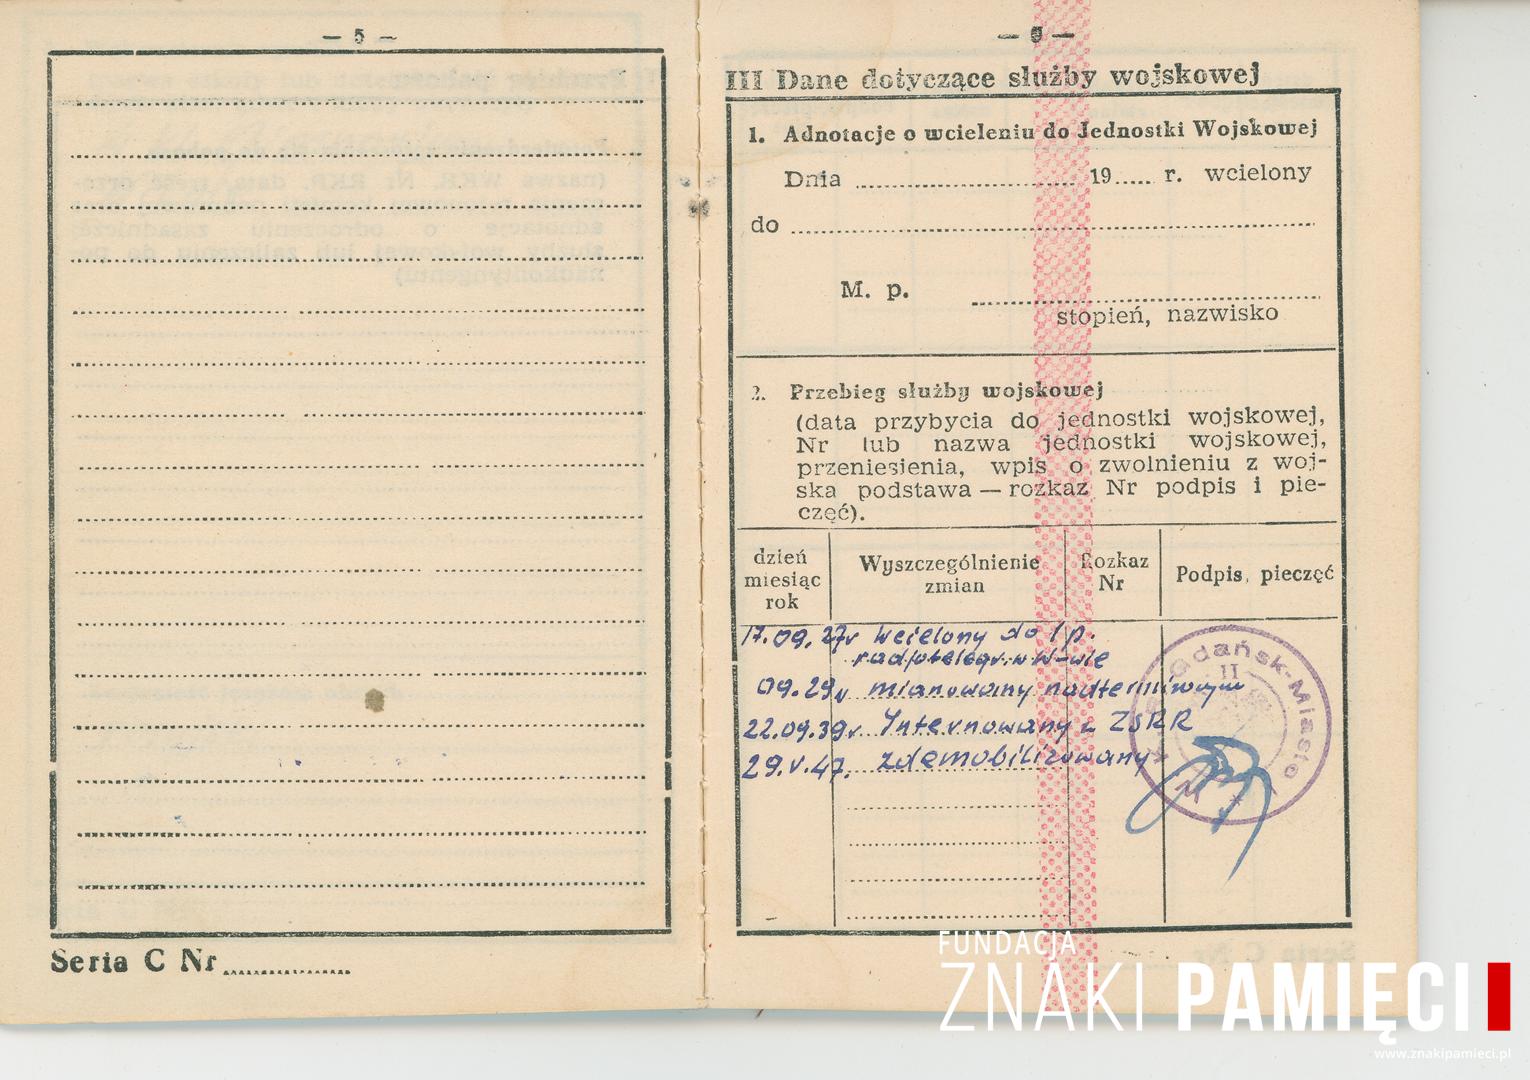 — 5 —
Seria C Nr
— 6 —
III Dane dotyczące służby wojskowej
1. Adnotacje o wcieleniu do Jednostki Wojskowej
Dnia 19 r. wcielony
do
M. p.
stopień, nazwisko
2. Przebieg służby wojskowej
(data przybycia do jednostki wojskowej,
Nr lub nazwa jednostki wojskowej,
przeniesienia, wpis o zwolnieniu z woj-
ska podstawa — rozkaz Nr podpis i pie-
częć).
dzień
miesiąc
rok
Wyszczególnienie
zmian
Rozkaz
Nr
Podpis, pieczęć
17.09.27r wcielony do 1 p.
radjotelegr. w W-wie
09.29r mianowany nadterminowym
22.09.39r Internowany w ZSRR
29.V.47. zdemobilizowany
Gdańsk-Miasto
II
FUNDACJA
ZNAKI PAMIĘCI
www.znakipamieci.pl